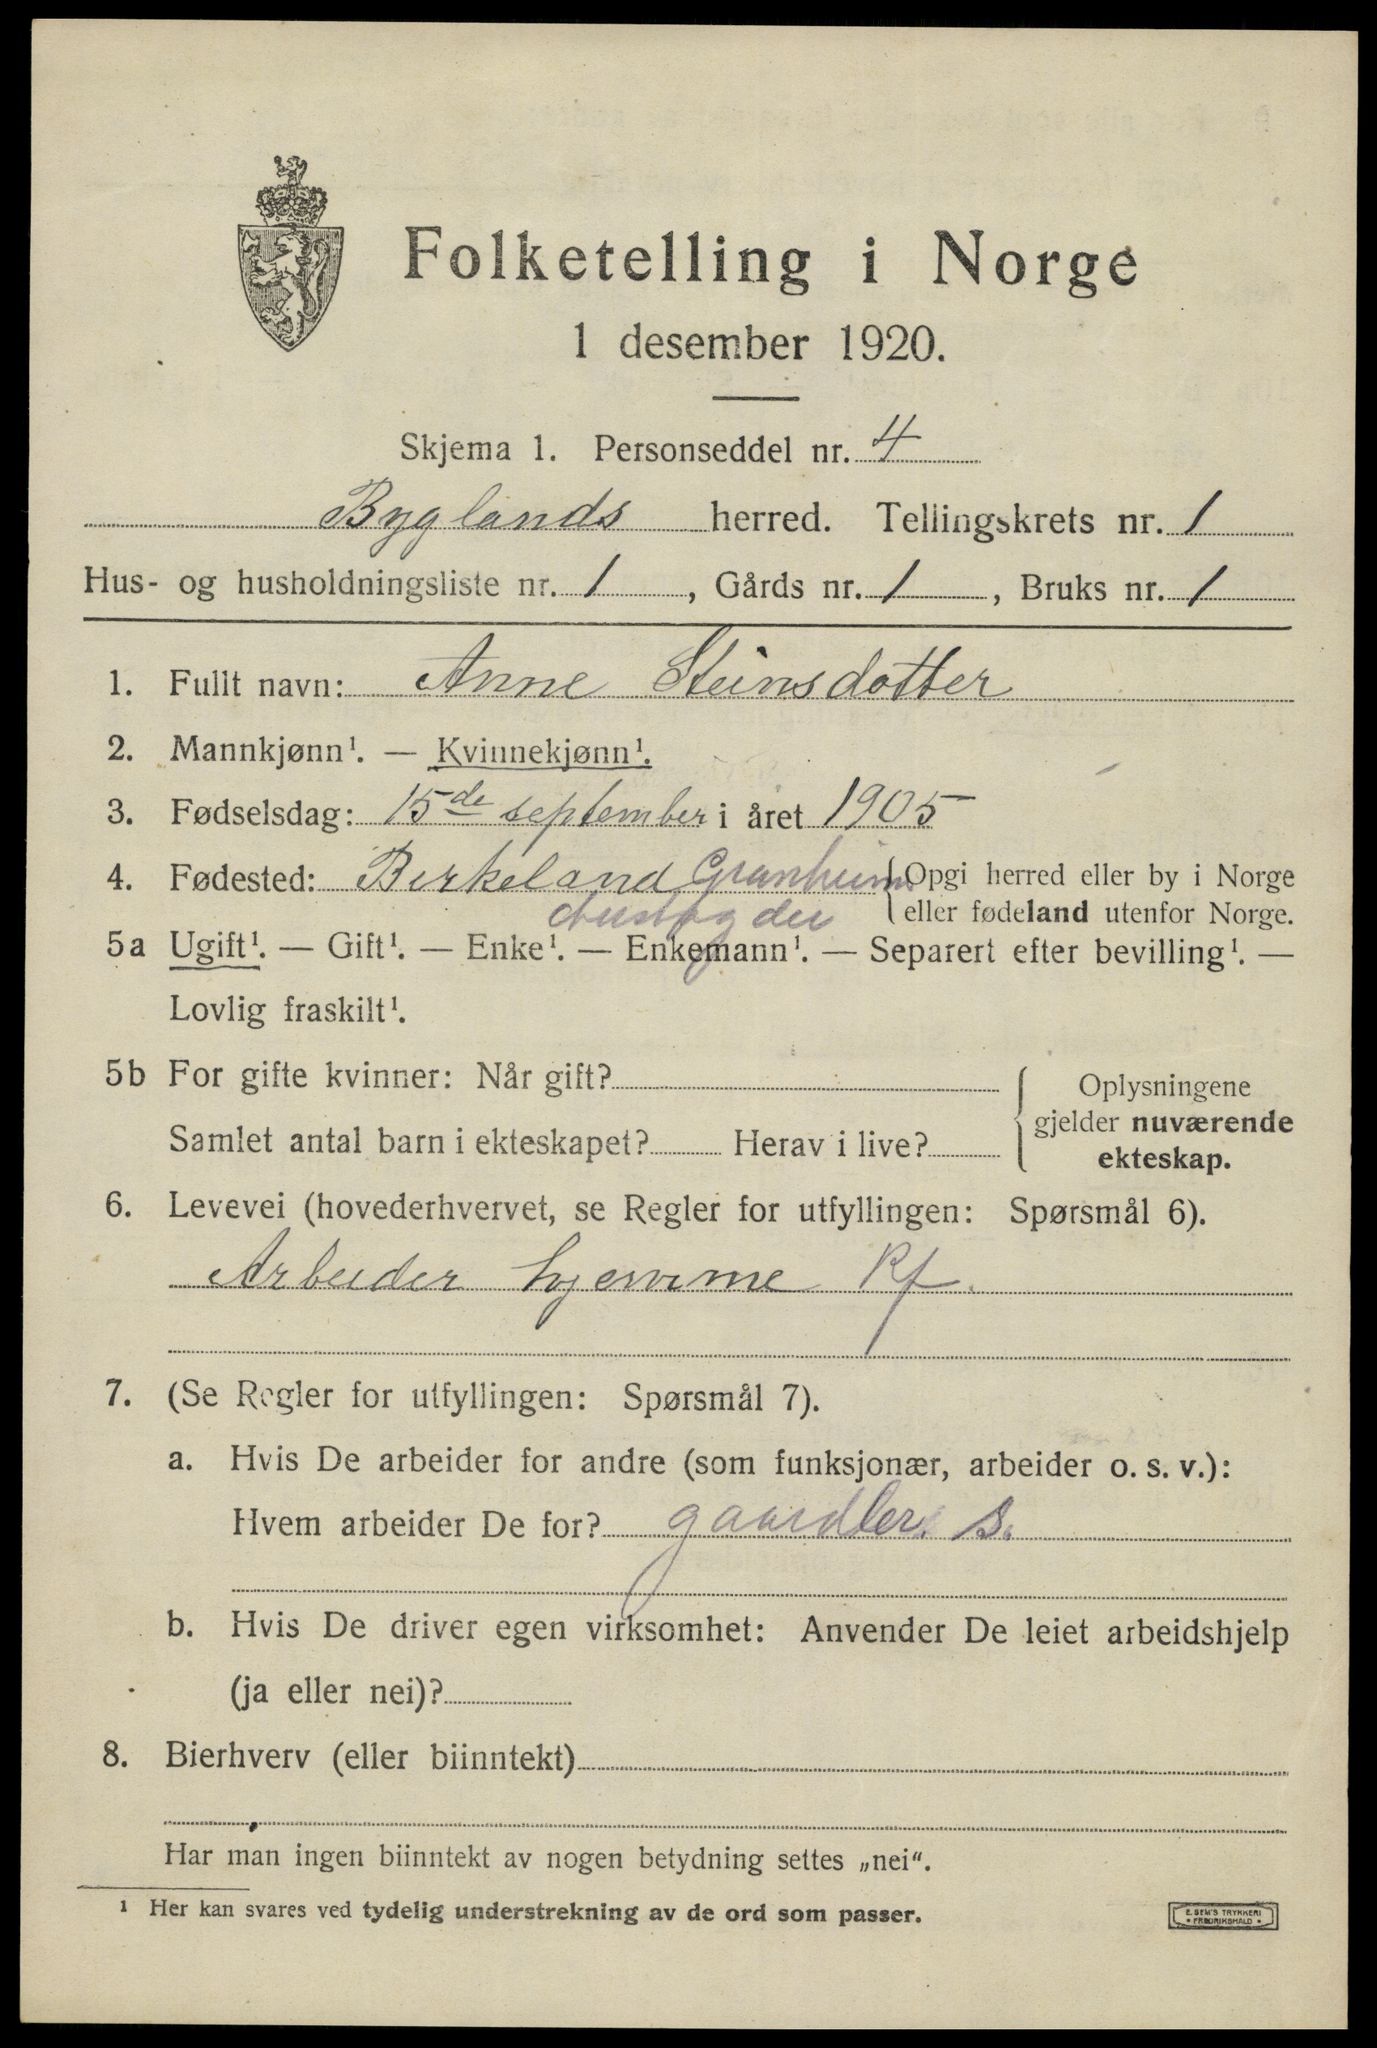 Folketelling i Norge
1 desember 1920.
Skjema 1. Personseddel nr. 4
Byglands herred. Tellingskrets nr. 1
Hus- og husholdningsliste nr. 1, Gårds nr. 1, Bruks nr. 1
1. Fullt navn: Anne Steinsdotter
2. Mannkjønn¹. — Kvinnekjønn¹.
3. Fødselsdag: 15de september i året 1905
4. Fødested: Birkeland Opgi herred eller by i Norge
Austagder eller fødeland utenfor Norge.
5a Ugift¹. — Gift¹. — Enke¹. — Enkemann¹. — Separert efter bevilling¹. —
Lovlig fraskilt¹.
5b For gifte kvinner: Når gift? Oplysningene
gjelder nuværende
Samlet antal barn i ekteskapet? Herav i live? ekteskap.
6. Levevei (hovederhvervet, se Regler for utfyllingen: Spørsmål 6).
Arbeider hjemme
7. (Se Regler for utfyllingen: Spørsmål 7).
a. Hvis De arbeider for andre (som funksjonær, arbeider o. s. v.):
Hvem arbeider De for?
b. Hvis De driver egen virksomhet: Anvender De leiet arbeidshjelp
(ja eller nei)?
8. Bierhverv (eller biinntekt)
Har man ingen biinntekt av nogen betydning settes „nei“.
¹ Her kan svares ved tydelig understrekning av de ord som passer.
E. SEM'S TRYKKERI
• FREDRIKSHALD •